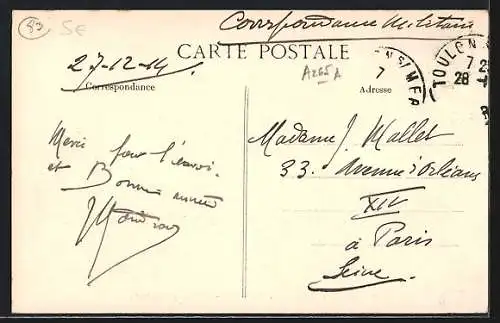 83
SE
Correspondance Militaire
CARTE POSTALE
27-12-14
A265A
Correspondance
Adresse
7
TOULON S
7 2
28
Merci pour l'envoi.
et Bonne année
Madame J. Mallet
33. Avenue d'Orléans
XIV
à Paris
Seine